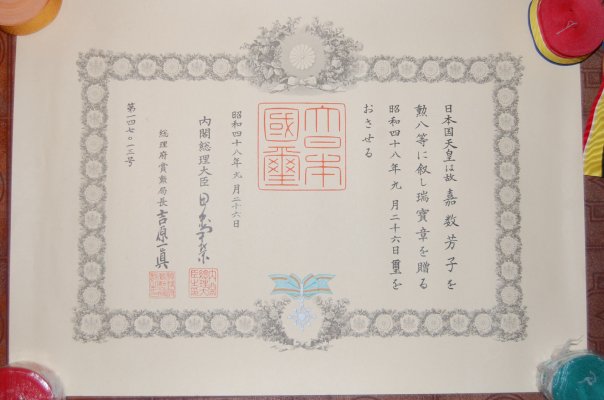 日本国天皇は故嘉数芳子を
勲八等に叙し瑞寶章を贈る
昭和四十八年九月二十六日璽を
おさせる
大日本國璽
昭和四十八年九月二十六日
内閣総理大臣 田中角榮
総理府賞勲局長 吉原一眞
第一四七〇一三号